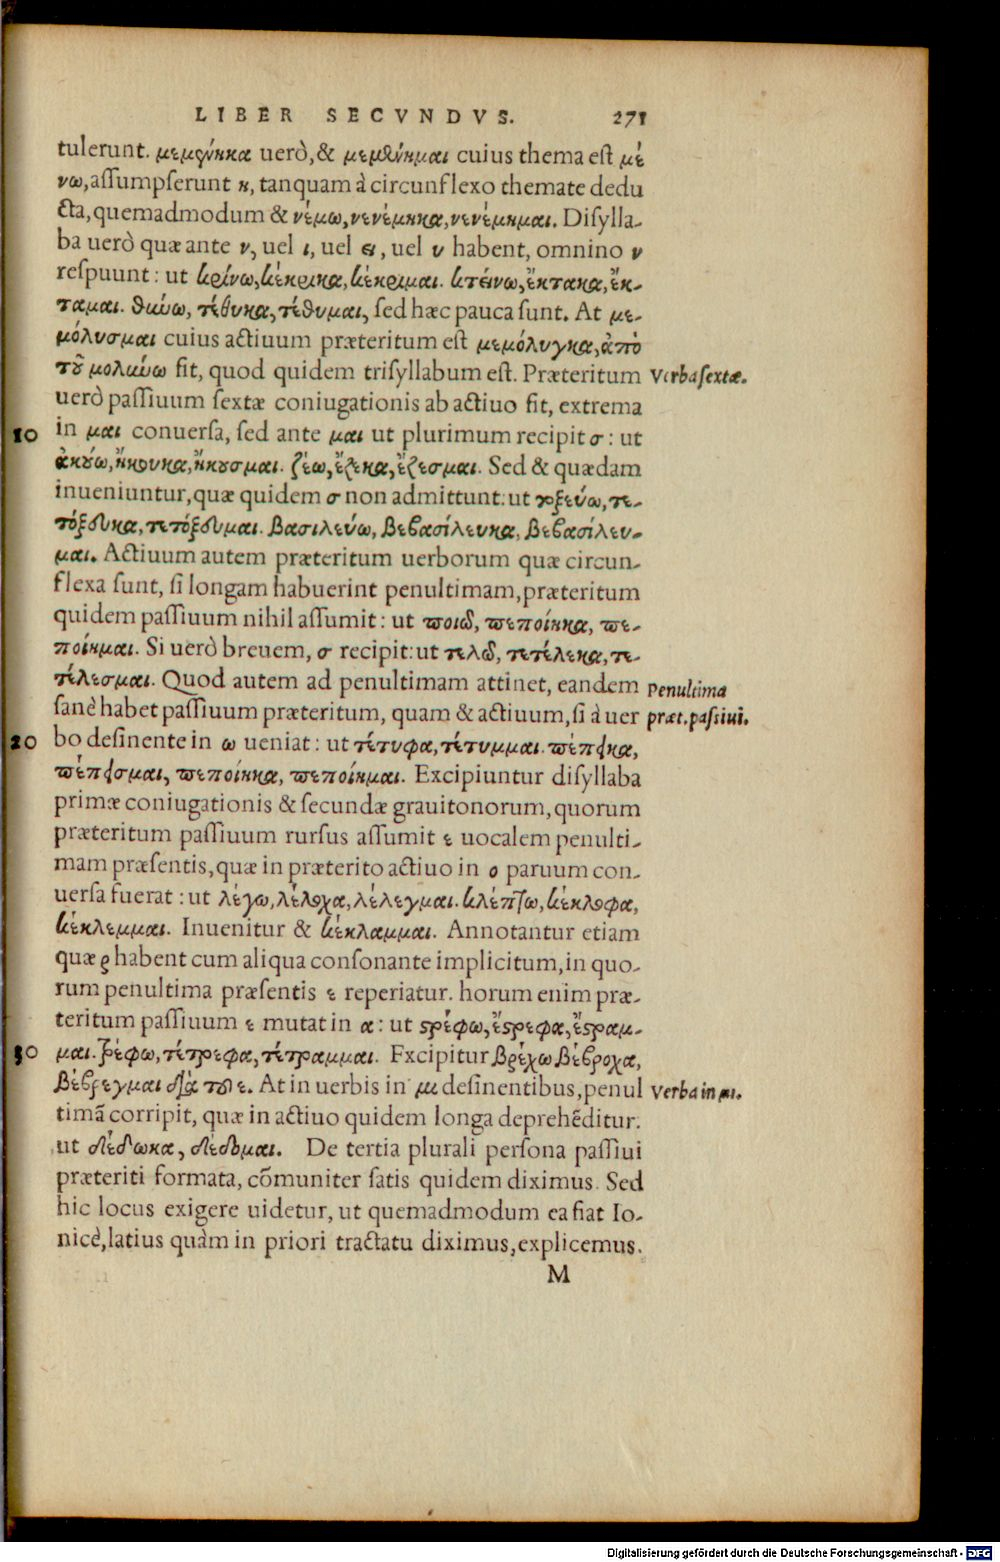 LIBER SECVNDVS. 271
tulerunt. μεμένηκα uerò, & μεμένημαι cuius thema est μέ
νω, assumpserunt η, tanquam à circunflexo themate dedu
cta, quemadmodum & νέμω, νενέμηκα, νενέμημαι. Disylla-
ba uerò quæ ante ν, uel ι, uel ει, uel υ habent, omnino ν
respuunt: ut κρίνω, κέκρικα, κέκριμαι. κτείνω, ἔκτακα, ἔκ-
ταμαι. θύνω, τέθυκα, τέθυμαι, sed hæc pauca sunt. At με-
μόλυσμαι cuius actiuum præteritum est μεμόλυγκα, ἀπὸ
τοῦ μολύνω fit, quod quidem trisyllabum est. Præteritum Verba sextæ.
uerò passiuum sextæ coniugationis ab actiuo fit, extrema
10 in μαι conuersa, sed ante μαι ut plurimum recipit σ: ut
ἀκούω, ἤκουκα, ἤκουσμαι. ζέω, ἔζεκα, ἔζεσμαι. Sed & quædam
inueniuntur, quæ quidem σ non admittunt: ut τοξεύω, τε-
τόξευκα, τετόξευμαι. βασιλεύω, βεβασίλευκα, βεβασίλευ-
μαι. Actiuum autem præteritum uerborum quæ circun-
flexa sunt, si longam habuerint penultimam, præteritum
quidem passiuum nihil assumit: ut ποιῶ, πεποίηκα, πε-
ποίημαι. Si uerò breuem, σ recipit: ut τελῶ, τετέλεκα, τε-
τέλεσμαι. Quod autem ad penultimam attinet, eandem Penultima
sanè habet passiuum præteritum, quam & actiuum, si à uer præt. passiui.
20 bo desinente in ω ueniat: ut τέτυφα, τέτυμμαι. πέπεικα,
πέπεισμαι, πεποίηκα, πεποίημαι. Excipiuntur disyllaba
primæ coniugationis & secundæ grauitonorum, quorum
præteritum passiuum rursus assumit ε uocalem penulti-
mam præsentis, quæ in præterito actiuo in ο paruum con-
uersa fuerat: ut λέγω, λέλοχα, λέλεγμαι. κλέπτω, κέκλοφα,
κέκλεμμαι. Inuenitur & κέκλαμμαι. Annotantur etiam
quæ ρ habent cum aliqua consonante implicitum, in quo-
rum penultima præsentis ε reperiatur. horum enim præ-
teritum passiuum ε mutat in α: ut στρέφω, ἔστρεφα, ἔστραμ-
30 μαι. τρέφω, τέτρεφα, τέτραμμαι. Excipitur βρέχω βέβροχα,
βέβρεγμαι διὰ τοῦ ε. At in uerbis in μι desinentibus, penul Verba in μι.
timã corripit, quæ in actiuo quidem longa deprehẽditur:
ut δέδωκα, δέδομαι. De tertia plurali persona passiui
præteriti formata, cõmuniter satis quidem diximus. Sed
hic locus exigere uidetur, ut quemadmodum ea fiat Io-
nicè, latius quàm in priori tractatu diximus, explicemus.
M
Digitalisierung gefördert durch die Deutsche Forschungsgemeinschaft - DFG